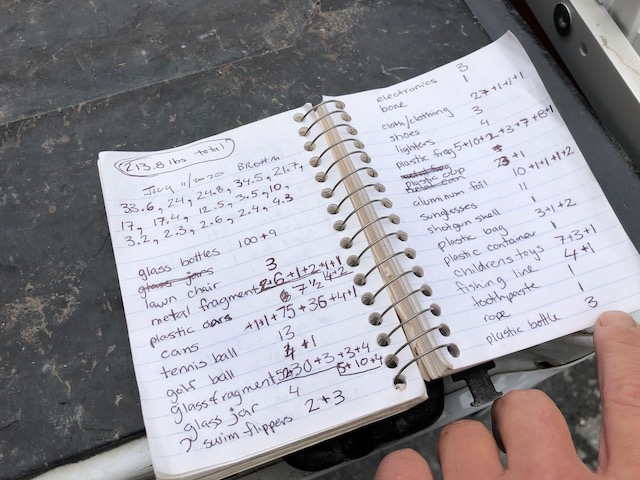 213.8 lbs total
July 11/2020
33.6, 24, 24.8, 34.5, 21.7,
17, 17.4, 12.5, 3.5, 10,
3.2, 2.3, 2.6, 2.4, 4.3
glass bottles 100+9
glass jars
lawn chair 3
metal fragments
plastic
cans +1+1+75+36+4+1
tennis ball 13
golf ball +1
glass fragments 30+3+3+4
glass jar 4 +10+4
swim flippers 2+3
electronics 3
bone 1
cloth/clothing 27+1+1+1
shoes 3
lighters 4
plastic frag 5+10+2+3+7+8+1
plastic cup
aluminum foil +1
sunglasses 10+1+1+1+2
shotgun shell 11
plastic bag 1
plastic container 3+1+2
childrens toys 1
fishing line 7+3+1
toothpaste 4+1
rope 1
plastic bottle 3